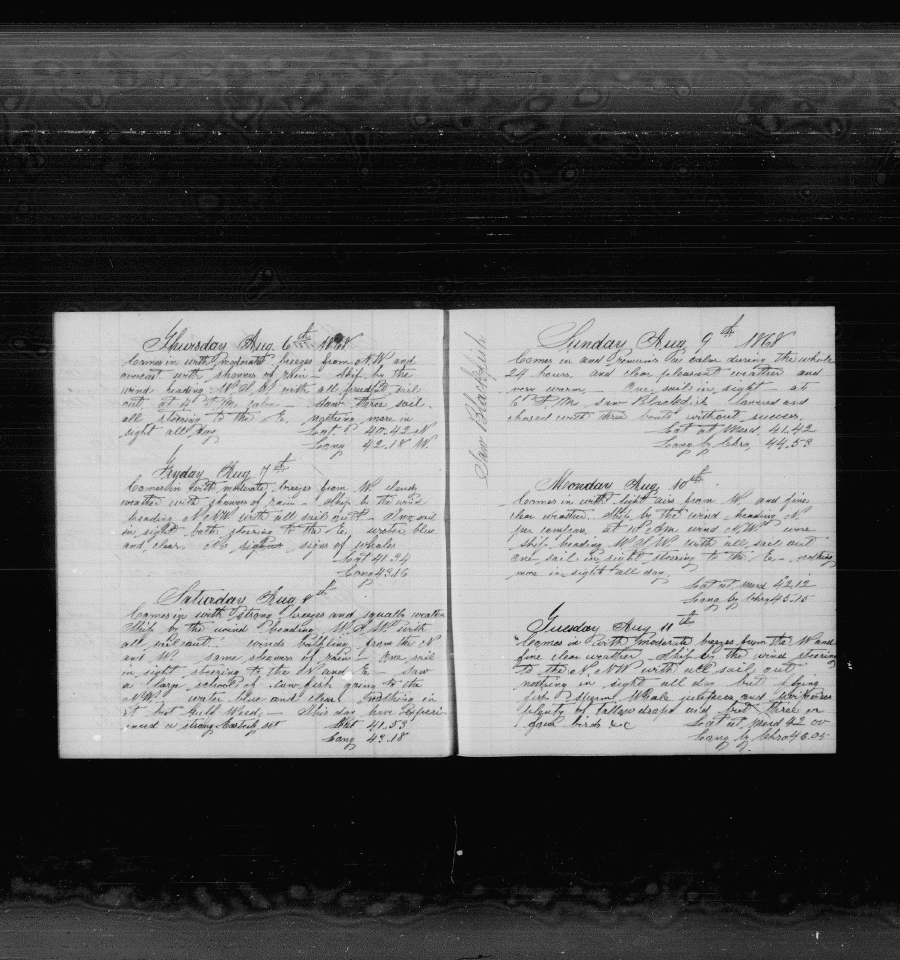 Thursday Aug. 6th 1868
Comes in with moderate breezes from NW and
overcast with showers of rain - Ship by the
wind heading W.S.W. with all prudent sail
out at 4 P.M. calm - Saw three sail
all steering to the E, nothing more in
sight all day Lat 40.42 N
Long 42.18 W
Fryday Aug 7th
Comes in with moderate breezes from W cloudy
weather with showers of rain - Ship by the wind
heading N.NW with all sail out - Two sail
in sight both steering to the E, water blue
and clear No signs of whales
Lat 41.24
Long 43.16
Saturday Aug 8th
Comes in with strong breezes and squally weather
Ship by the wind heading W.S.W. with
all sail out. winds baffling from the N
and W some showers of rain - One sail
in sight steering to the N and E - Saw
a large school of cow fish going to the
NW, water blue and clear Nothing in
it but Gulf Weed - This day have Experi-
enced a strong Easterly set Lat 41.53
Long 43.18
Saw Blackfish
Sunday Aug 9th 1868
Comes in and remains calm during the whole
24 hours, and clear pleasant weather and
very warm, One sail in sight - at
6 P.M. saw Blackfish lowered and
chased with three boats without success
Lat at Merd, 41.42
Long by Chro, 44.53
Monday Aug, 10th
Comes in with light airs from W and fine
clear weather. Ship by the wind heading N
at A.M. wind N.W. wore
ship heading W.S.W. with all sail out
one sail in sight steering to the E - nothing
more in sight all day
Lat at Merd 42.12
Long by Chro 45.15
Tuesday Aug 11th
Comes in with moderate breezes from the W and
fine clear weather Ship by the wind steering
to the N.NW with all sail out
nothing in sight all day but flying
fish Sperm Whale and
plenty of and but three or
four birds &c Lat at Merd 42 00
Long by Chro 46.05